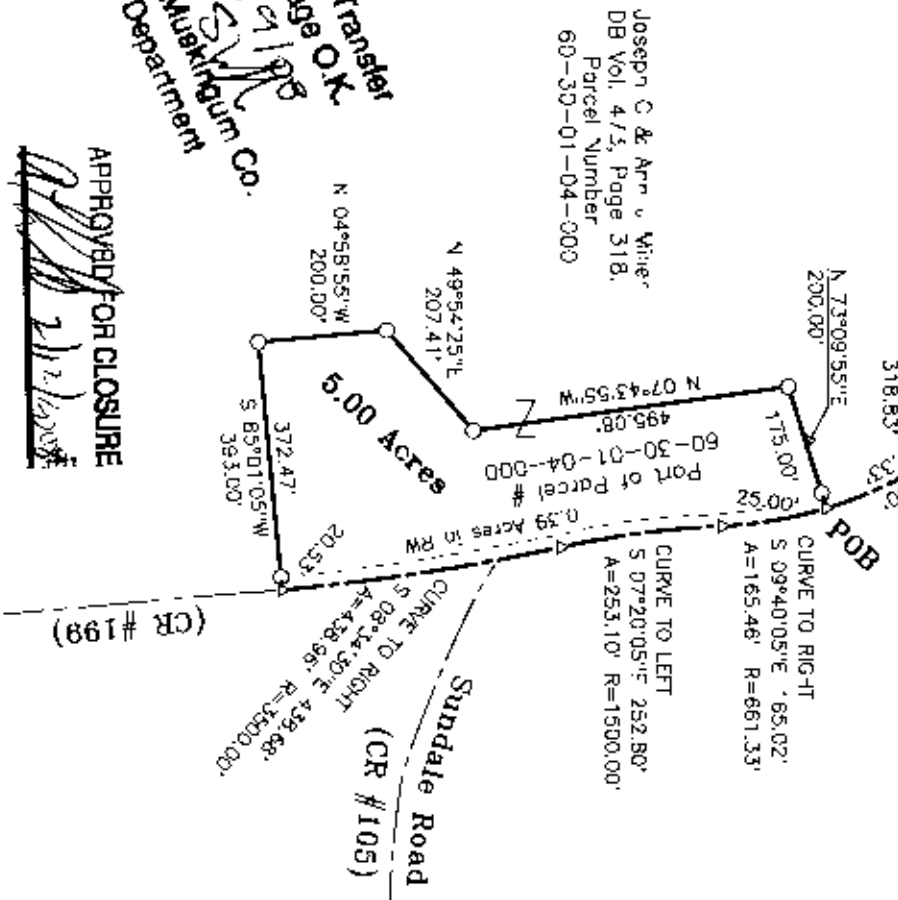 Transfer
O.K.
Muskingum Co.
Department
APPROVED FOR CLOSURE
Joseph C & Ann
DB Vol. 473, Page 318,
Parcel Number
60-30-01-04-000
N 04°58'55"W
200.00'
N 49°54'25"E
207.41'
N 73°09'55"E
200.00'
175.00'
318.83'
25.00'
POB
N 07°43'55"W
495.08'
Part of Parcel #
60-30-01-04-000
0.39 Acres in RW
5.00 Acres
372.47'
S 85°01'05"W
393.00'
20.53'
CURVE TO RIGHT
S 09°40'05"E 165.02'
A=165.46' R=661.33'
CURVE TO LEFT
S 07°20'05"E 252.80'
A=253.10' R=1500.00'
CURVE TO RIGHT
S 08°34'30"E 438.68'
A=438.96' R=3500.00'
(CR #199)
Sundale Road
(CR #105)